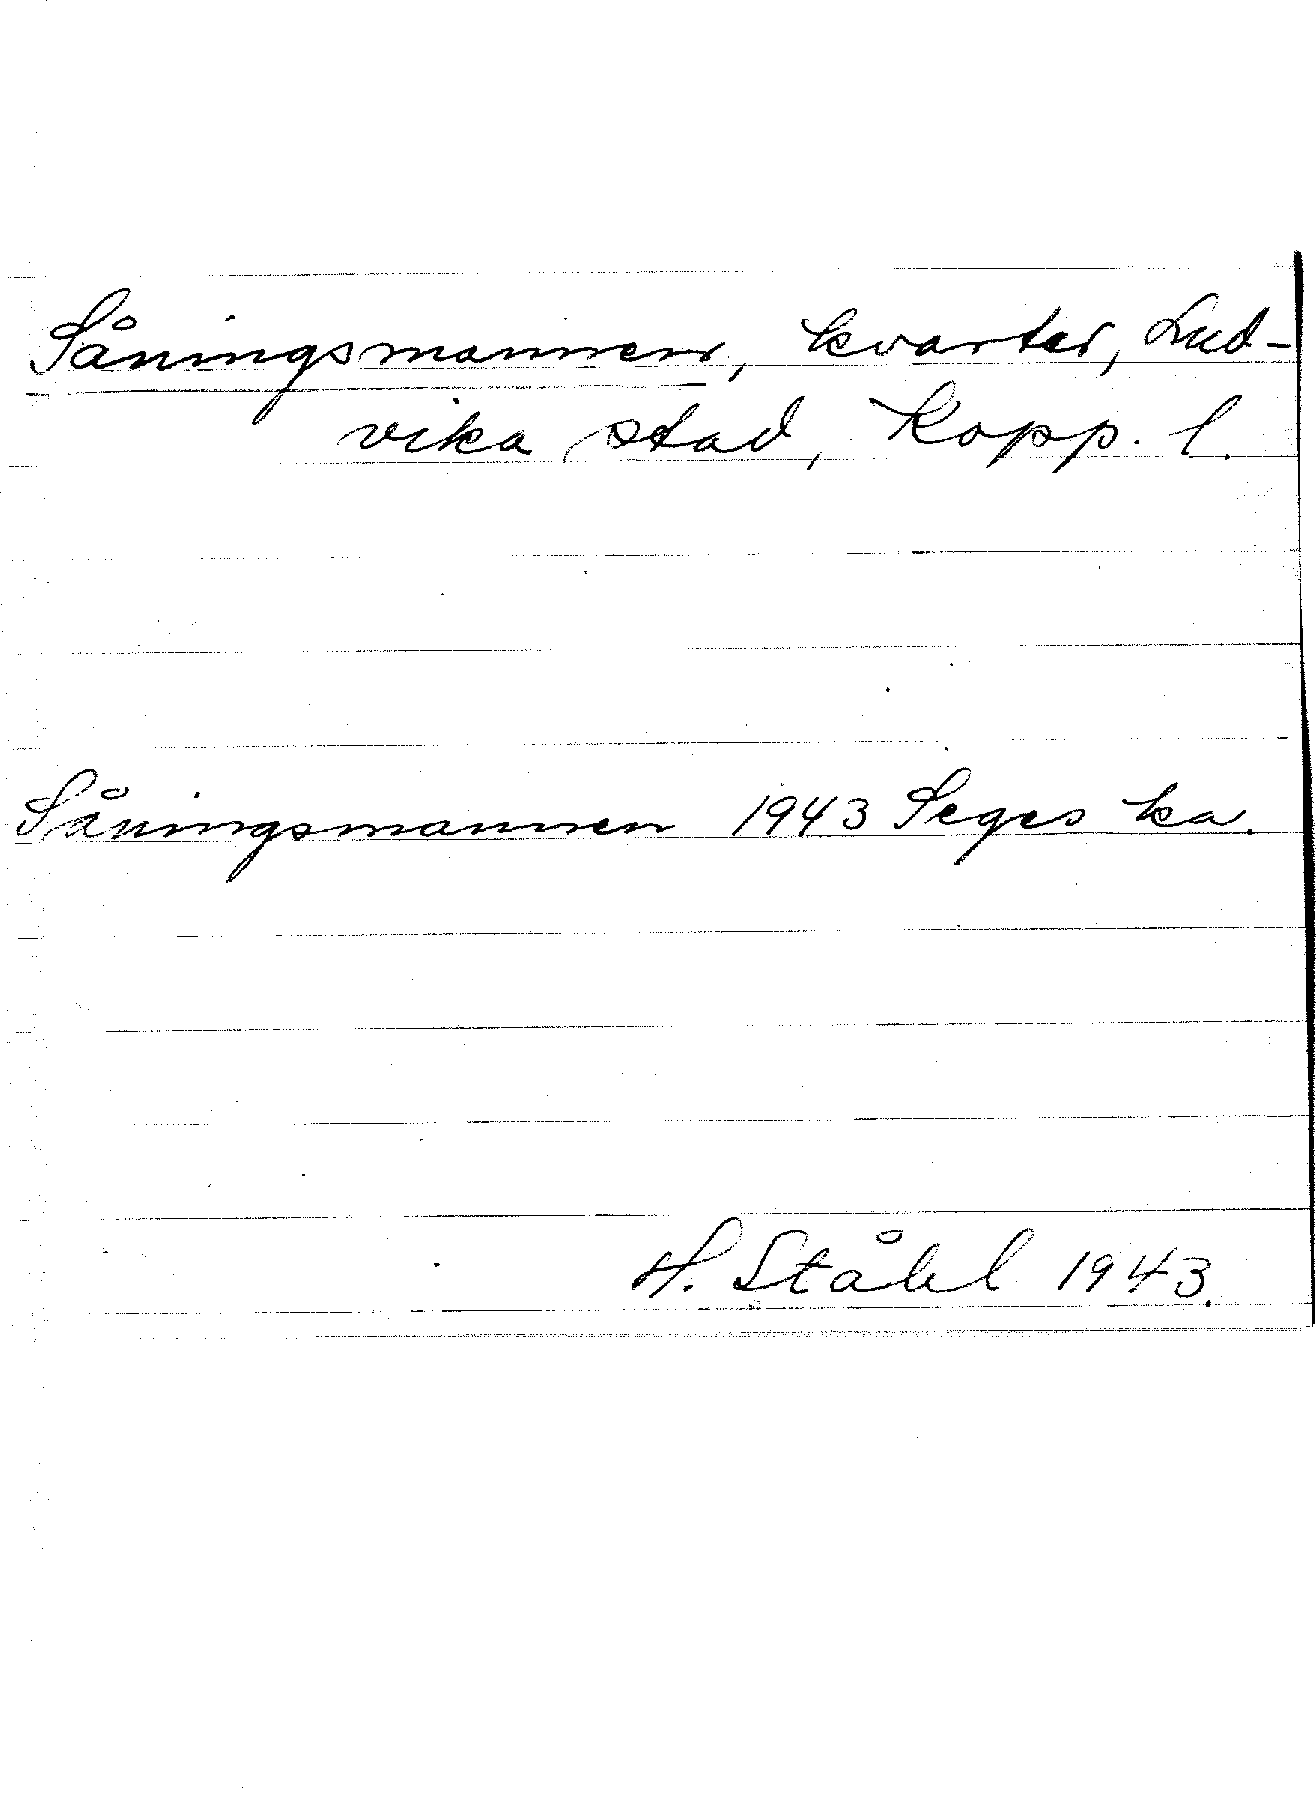 Såningsmannen, kvarter, Lud-
vika stad, Kopp. l.
Såningsmannen 1943 Seges ka.
H. Ståhl 1943.